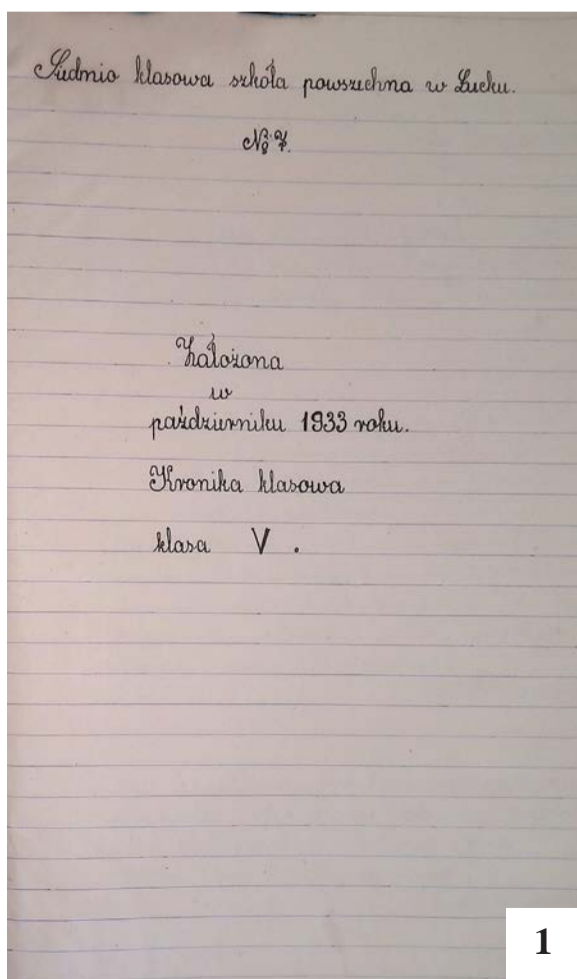 Siedmio klasowa szkoła powszechna w Łucku.
№ 7.
Założona
w
październiku 1933 roku.
Kronika klasowa
klasa V .
1